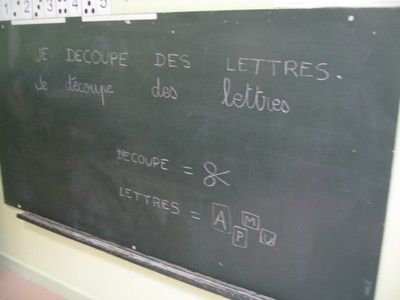 1 2 3 4 5
JE DECOUPE DES LETTRES.
Je découpe des lettres
DECOUPE =
LETTRES = A M P U